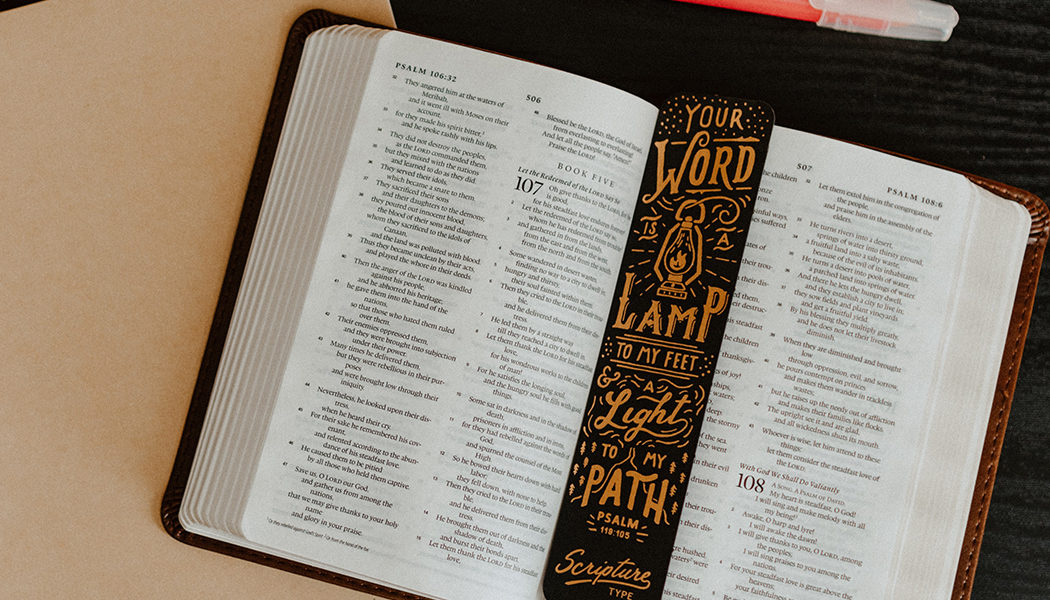 PSALM 106:32
32 They angered him at the waters of
Meribah,
and it went ill with Moses on their
account,
33 for they made his spirit bitter,
and he spoke rashly with his lips.
34 They did not destroy the peoples,
as the LORD commanded them,
35 but they mixed with the nations
and learned to do as they did.
36 They served their idols,
which became a snare to them.
37 They sacrificed their sons
and their daughters to the demons;
38 they poured out innocent blood,
the blood of their sons and daughters,
whom they sacrificed to the idols of
Canaan,
and the land was polluted with blood.
39 Thus they became unclean by their acts,
and played the whore in their deeds.
40 Then the anger of the LORD was kindled
against his people,
and he abhorred his heritage;
41 he gave them into the hand of the
nations,
so that those who hated them ruled
over them.
42 Their enemies oppressed them,
and they were brought into subjection
under their power.
43 Many times he delivered them,
but they were rebellious in their pur-
poses
and were brought low through their
iniquity.
44 Nevertheless, he looked upon their dis-
tress,
when he heard their cry.
45 For their sake he remembered his cov-
enant,
and relented according to the abun-
dance of his steadfast love.
46 He caused them to be pitied
by all those who held them captive.
47 Save us, O LORD our God,
and gather us from among the
nations,
that we may give thanks to your holy
name
and glory in your praise.
506
48 Blessed be the LORD, the God of Israel,
from everlasting to everlasting!
And let all the people say, "Amen!"
Praise the LORD!
BOOK FIVE
Let the Redeemed of the LORD Say So
107 Oh give thanks to the LORD, for he
is good,
for his steadfast love endures
2 Let the redeemed of the LORD say so,
whom he has redeemed from trouble
3 and gathered in from the lands,
from the east and from the west,
from the north and from the south.
4 Some wandered in desert wastes,
finding no way to a city to dwell in;
5 hungry and thirsty,
their soul fainted within them.
6 Then they cried to the LORD in their trou-
ble,
and he delivered them from their dis-
tress.
7 He led them by a straight way
till they reached a city to dwell in.
8 Let them thank the LORD for his steadfast
love,
for his wondrous works to the children
of man!
9 For he satisfies the longing soul,
and the hungry soul he fills with good
things.
10 Some sat in darkness and in the shadow of
death,
prisoners in affliction and in irons,
11 for they had rebelled against the words of
God,
and spurned the counsel of the Most
High.
12 So he bowed their hearts down with hard
labor;
they fell down, with none to help.
13 Then they cried to the LORD in their trou-
ble,
and he delivered them from their dis-
tress.
14 He brought them out of darkness and the
shadow of death,
and burst their bonds apart.
15 Let them thank the LORD for his steadfast
love,
YOUR
WORD
IS A
LAMP
TO MY FEET
& A
Light
TO MY
PATH
PSALM
119:105
Scripture
TYPE
507
PSALM 108:6
32 Let them extol him in the congregation of
the people,
and praise him in the assembly of the
elders.
33 He turns rivers into a desert,
springs of water into thirsty ground,
34 a fruitful land into a salty waste,
because of the evil of its inhabitants.
35 He turns a desert into pools of water,
a parched land into springs of water.
36 And there he lets the hungry dwell,
and they establish a city to live in;
37 they sow fields and plant vineyards
and get a fruitful yield.
38 By his blessing they multiply greatly,
and he does not let their livestock
diminish.
39 When they are diminished and brought
low
through oppression, evil, and sorrow,
40 he pours contempt on princes
and makes them wander in trackless
wastes;
41 but he raises up the needy out of affliction
and makes their families like flocks.
42 The upright see it and are glad,
and all wickedness shuts its mouth.
43 Whoever is wise, let him attend to these
things;
let them consider the steadfast love of
the LORD.
With God We Shall Do Valiantly
108 A SONG. A PSALM OF DAVID.
My heart is steadfast, O God!
I will sing and make melody with all
my being!
2 Awake, O harp and lyre!
I will awake the dawn!
3 I will give thanks to you, O LORD, among
the peoples;
I will sing praises to you among the
nations.
4 For your steadfast love is great above the
heavens;
your faithfulness